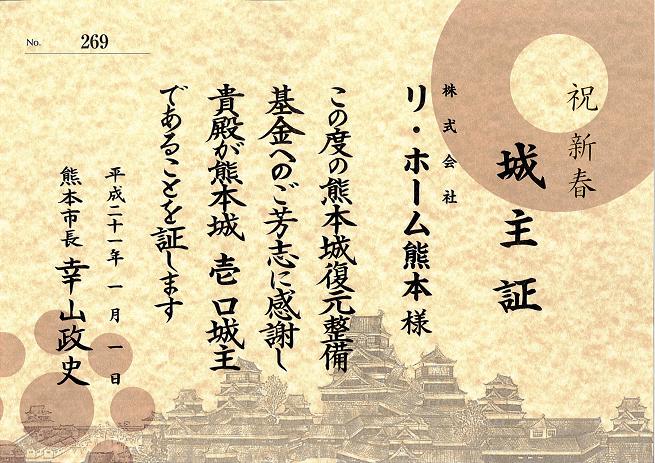 No. 269
祝新春
城主証
株式会社
リ・ホーム熊本様
この度の熊本城復元整備
基金へのご芳志に感謝し
貴殿が熊本城壱口城主
であることを証します
平成二十一年一月一日
熊本市長 幸山政史